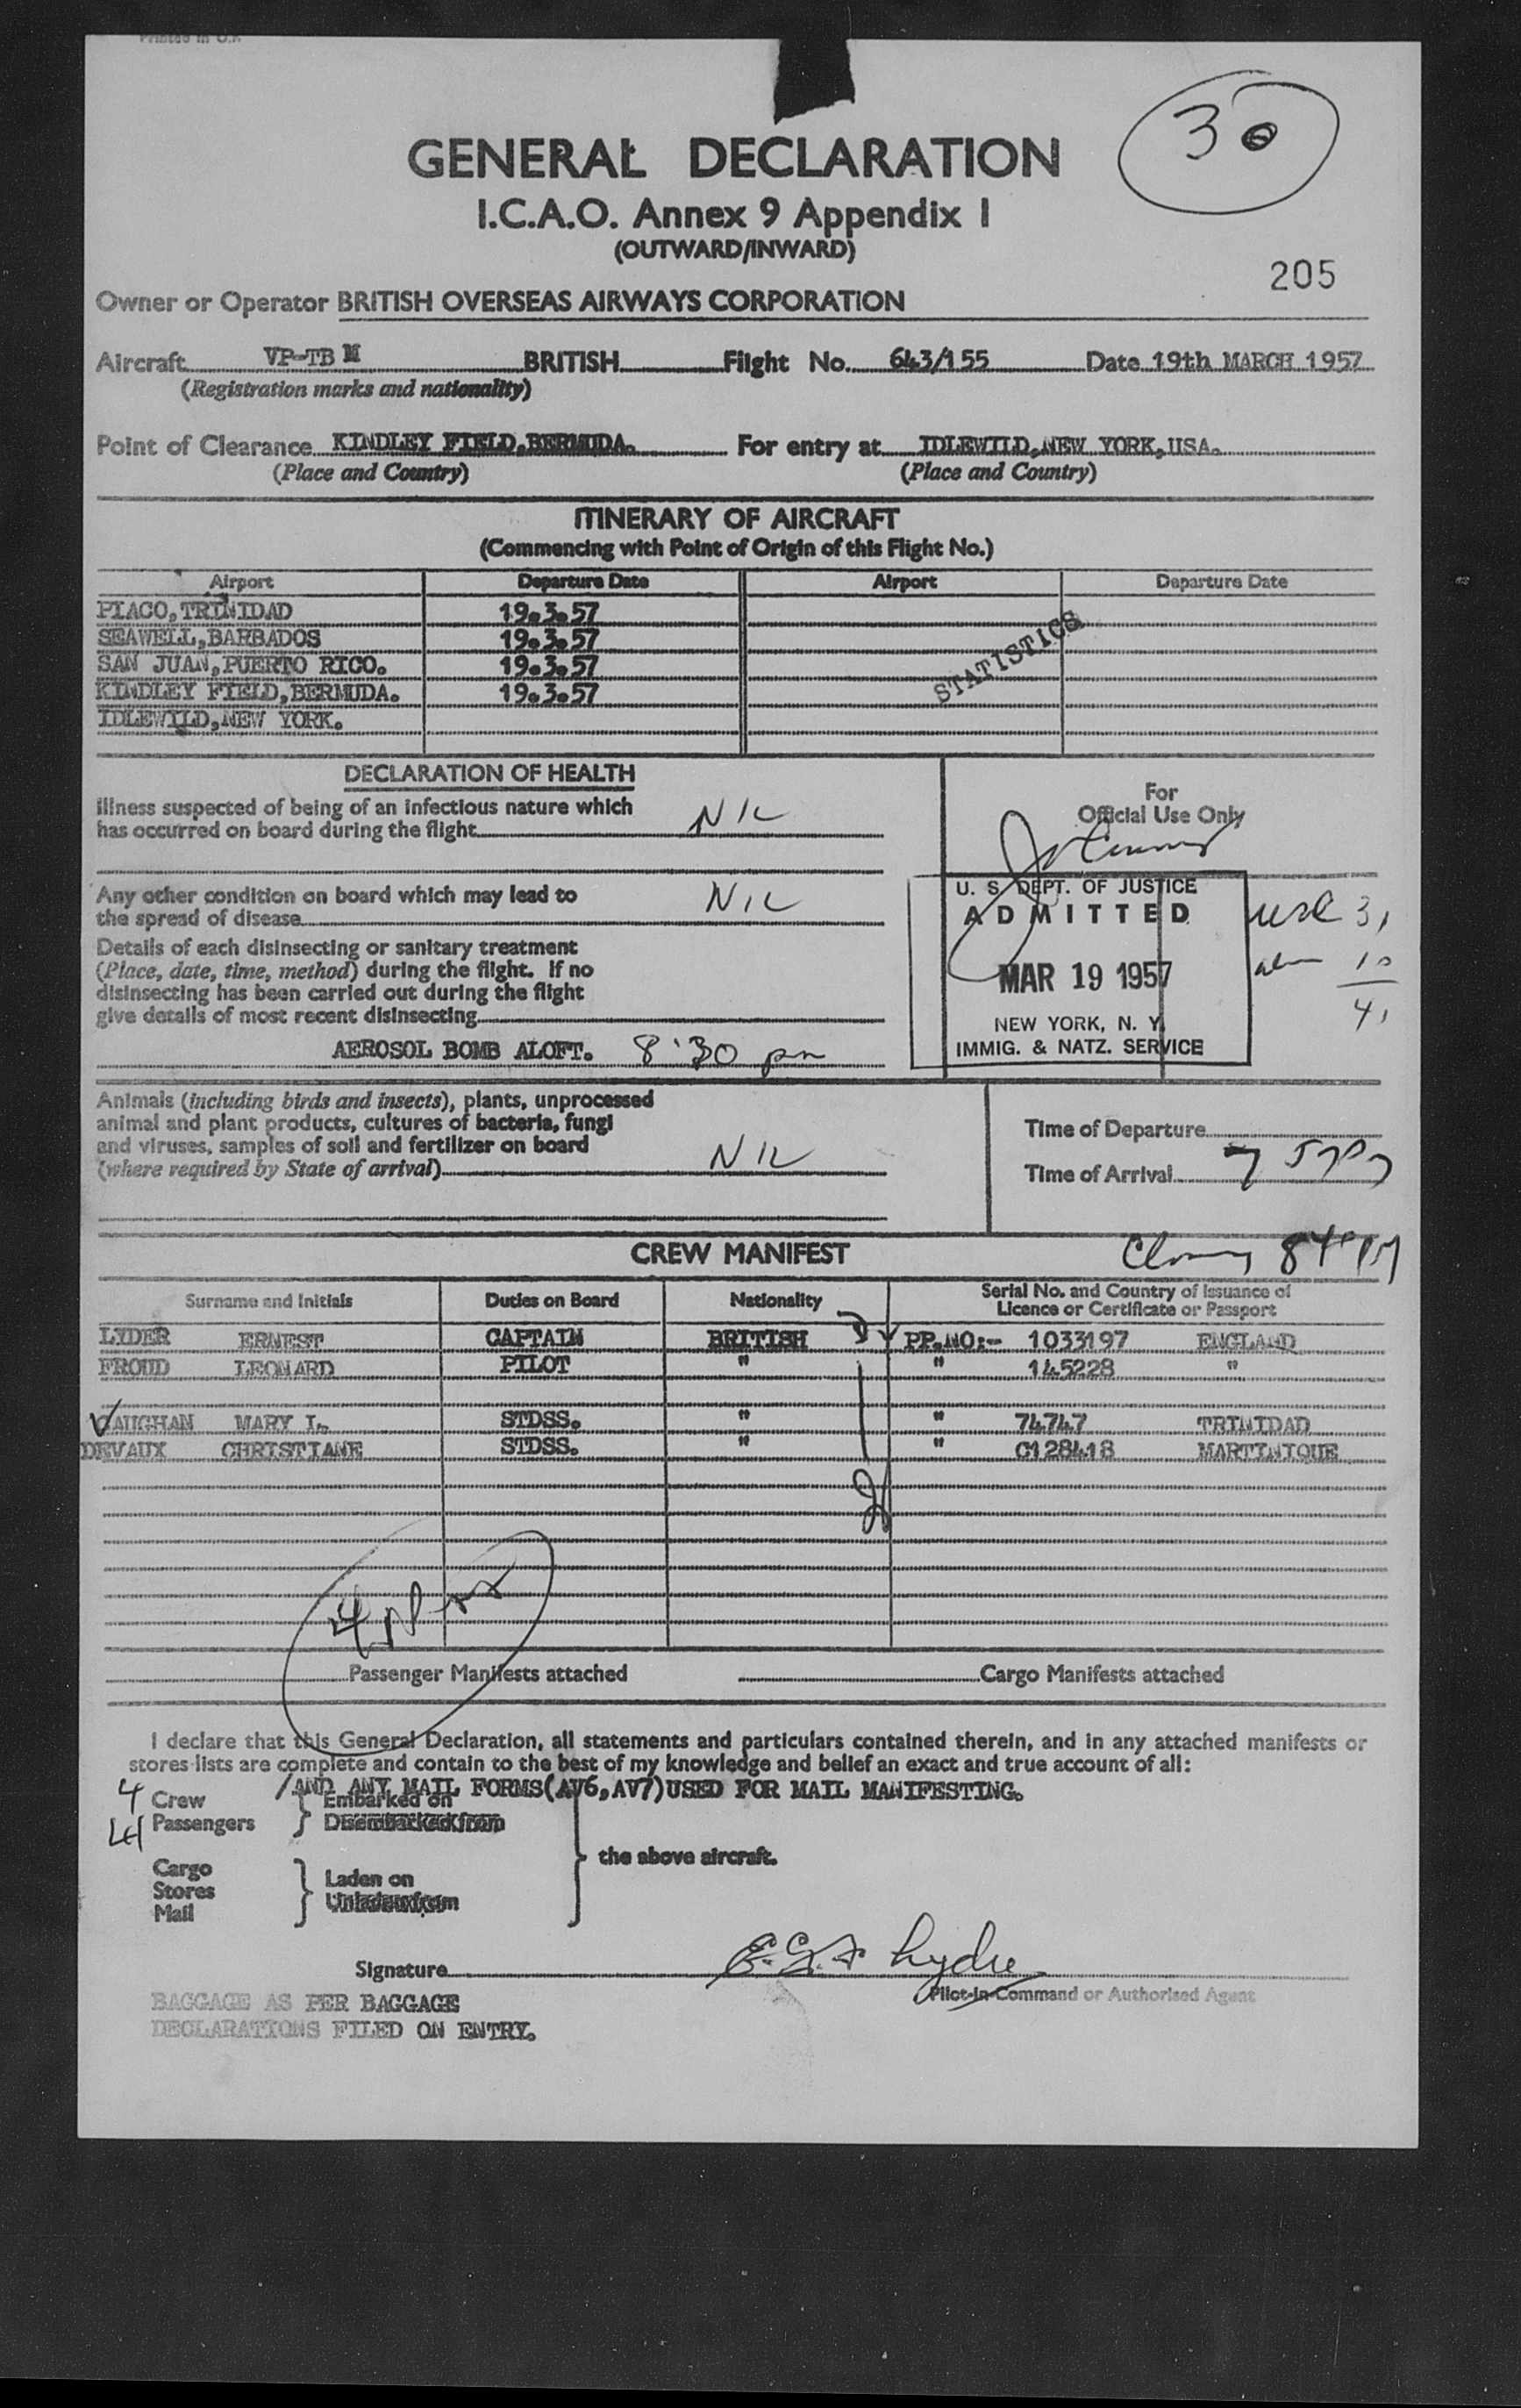 Printed in U.K
30
GENERAL DECLARATION
I.C.A.O. Annex 9 Appendix I
(OUTWARD/INWARD)
205
Owner or Operator BRITISH OVERSEAS AIRWAYS CORPORATION
Aircraft VP-TBM BRITISH Flight No. 643/155 Date 19th MARCH 1957
(Registration marks and nationality)
Point of Clearance KINDLEY FIELD,BERMUDA. For entry at IDLEWILD,NEW YORK,USA.
(Place and Country) (Place and Country)
ITINERARY OF AIRCRAFT
(Commencing with Point of Origin of this Flight No.)
Airport Departure Date Airport Departure Date
PIACO,TRINIDAD 19.3.57
SEAWELL,BARBADOS 19.3.57
SAN JUAN,PUERTO RICO. 19.3.57
KINDLEY FIELD,BERMUDA. 19.3.57
IDLEWILD,NEW YORK.
STATISTICS
DECLARATION OF HEALTH
Illness suspected of being of an infectious nature which
has occurred on board during the flight NIL
Any other condition on board which may lead to
the spread of disease NIL
Details of each disinsecting or sanitary treatment
(Place, date, time, method) during the flight. If no
disinsecting has been carried out during the flight
give details of most recent disinsecting
AEROSOL BOMB ALOFT. 8:30 pm
For
Official Use Only
U. S. DEPT. OF JUSTICE
ADMITTED
MAR 19 1957
NEW YORK, N. Y.
IMMIG. & NATZ. SERVICE
usc 31
alien 10
41
Animals (including birds and insects), plants, unprocessed
animal and plant products, cultures of bacteria, fungi
and viruses, samples of soil and fertilizer on board
(where required by State of arrival) NIL
Time of Departure
Time of Arrival
CREW MANIFEST
Surname and Initials Duties on Board Nationality Serial No. and Country of Issuance of
Licence or Certificate or Passport
LYDER ERNEST CAPTAIN BRITISH PP.NO:- 1033197 ENGLAND
FROUD LEONARD PILOT " " 145228 "
VAUGHAN MARY I. STDSS. " " 74747 TRINIDAD
DEVAUX CHRISTIANE STDSS. " " C128418 MARTINIQUE
Passenger Manifests attached Cargo Manifests attached
I declare that this General Declaration, all statements and particulars contained therein, and in any attached manifests or
stores lists are complete and contain to the best of my knowledge and belief an exact and true account of all:
/AND ANY MAIL FORMS(AV6,AV7)USED FOR MAIL MANIFESTING.
4 Crew Embarked on
41 Passengers Disembarked from
the above aircraft.
Cargo
Stores Laden on
Mail Unladen from
Signature E.G.F. Lyder
Pilot-in-Command or Authorised Agent
BAGGAGE AS PER BAGGAGE
DECLARATIONS FILED ON ENTRY.